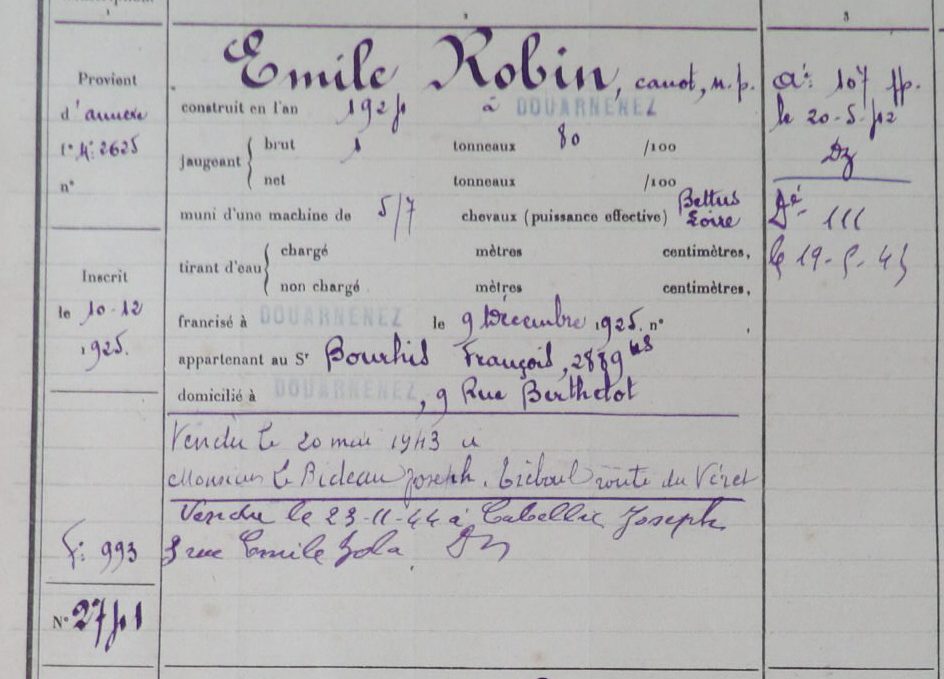 Provient
d'annexe
n°
Inscrit
le 10-12
1925.
F: 993
N° 2741
Emile Robin, canot, n.p.
construit en l'an 1924 à DOUARNENEZ
jaugeant
brut 1 tonneaux 80 /100
net tonneaux /100
muni d'une machine de 5/7 chevaux (puissance effective) Bettus
Loire
tirant d'eau
chargé mètres centimètres,
non chargé mètres centimètres,
francisé à DOUARNENEZ le 9 Décembre 1925. n° ,
appartenant au Sr Bourhis François, 2889
domicilié à DOUARNENEZ, 9 Rue Berthelot
Vendu le 20 mai 1943 a
Monsieur Le Bideau Joseph. Tréboul route du Véret
Vendu le 23-11-44 à Cabellic Joseph
3 rue Emile Zola Dz
3
107 pp.
le 20-5-42
Dz
Dé- 111
le 19-5-45